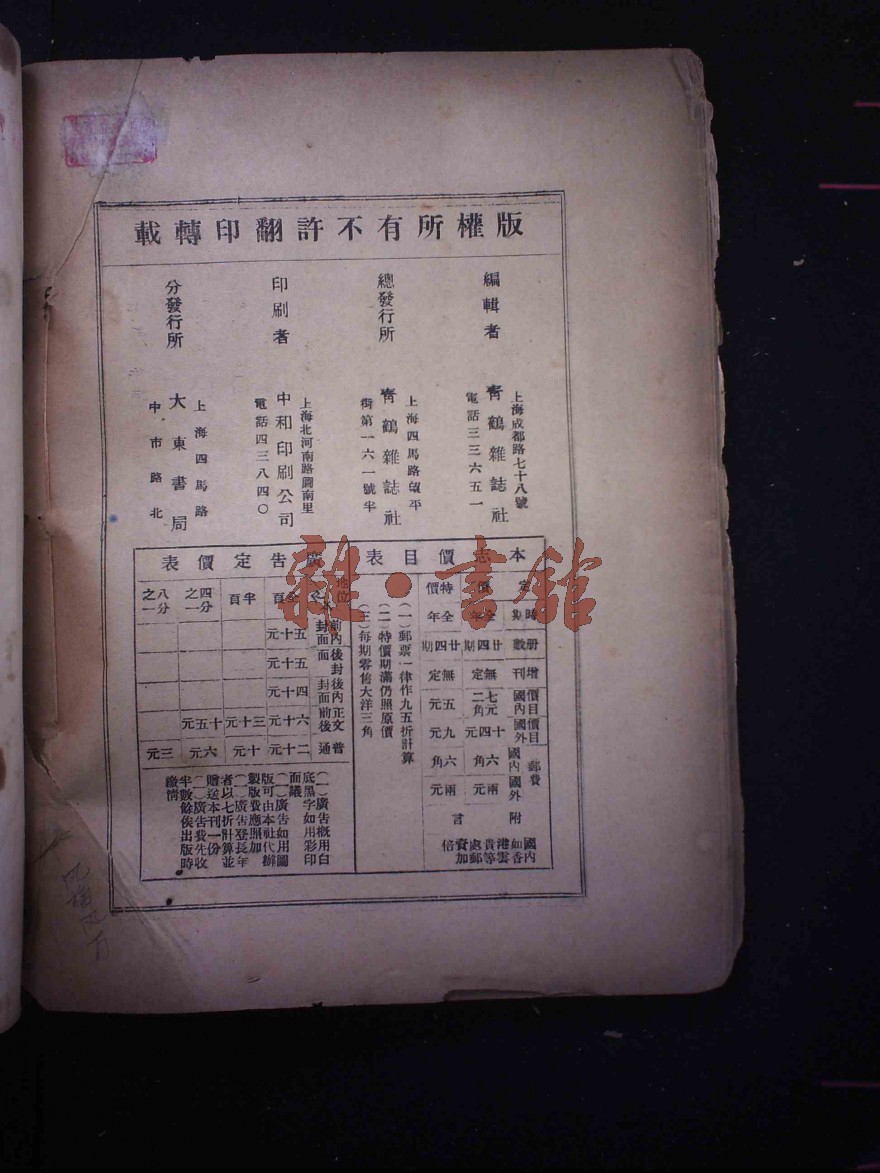 版權所有不許翻印轉載
編輯者
上海成都路七十八號
青鶴雜誌社
電話三三六五一
總發行所
上海四馬路望平
青鶴雜誌社
街第一六一號半
印刷者
上海北河南路圖南里
中和印刷公司
電話四三八四〇
分發行所
上海四馬路
大東書局
中市路北
本志價目表
定價 特價
時期 全年 全年
冊數 廿四期 廿四期
增刊 無定 無定
價目國內 七元二角 五元
價目國外 十四元 九元
郵費 國內 六角 六角
國外 兩元 兩元
附言
國內如香港雲貴等處郵費加倍
(一)郵票一律作九五折計算
(二)特價期滿仍照原價
(三)每期零售大洋三角
廣告定價表
地位 全頁 半頁 四分之一 八分之一
前內封面 五十元
後封面 五十元
後內封面 四十元
正文前後 六十元 三十元 十五元
普通 二十元 十元 六元 三元
(一)廣告概用白
底黑字如用彩印
面議
(一)廣告如用圖
版可由本社代辦
製版費應照加
(一)廣告登長年
者以七折計算並
贈送本刊一份
(一)廣告我先收
半數餘俟出版時
繳情
雜·書館